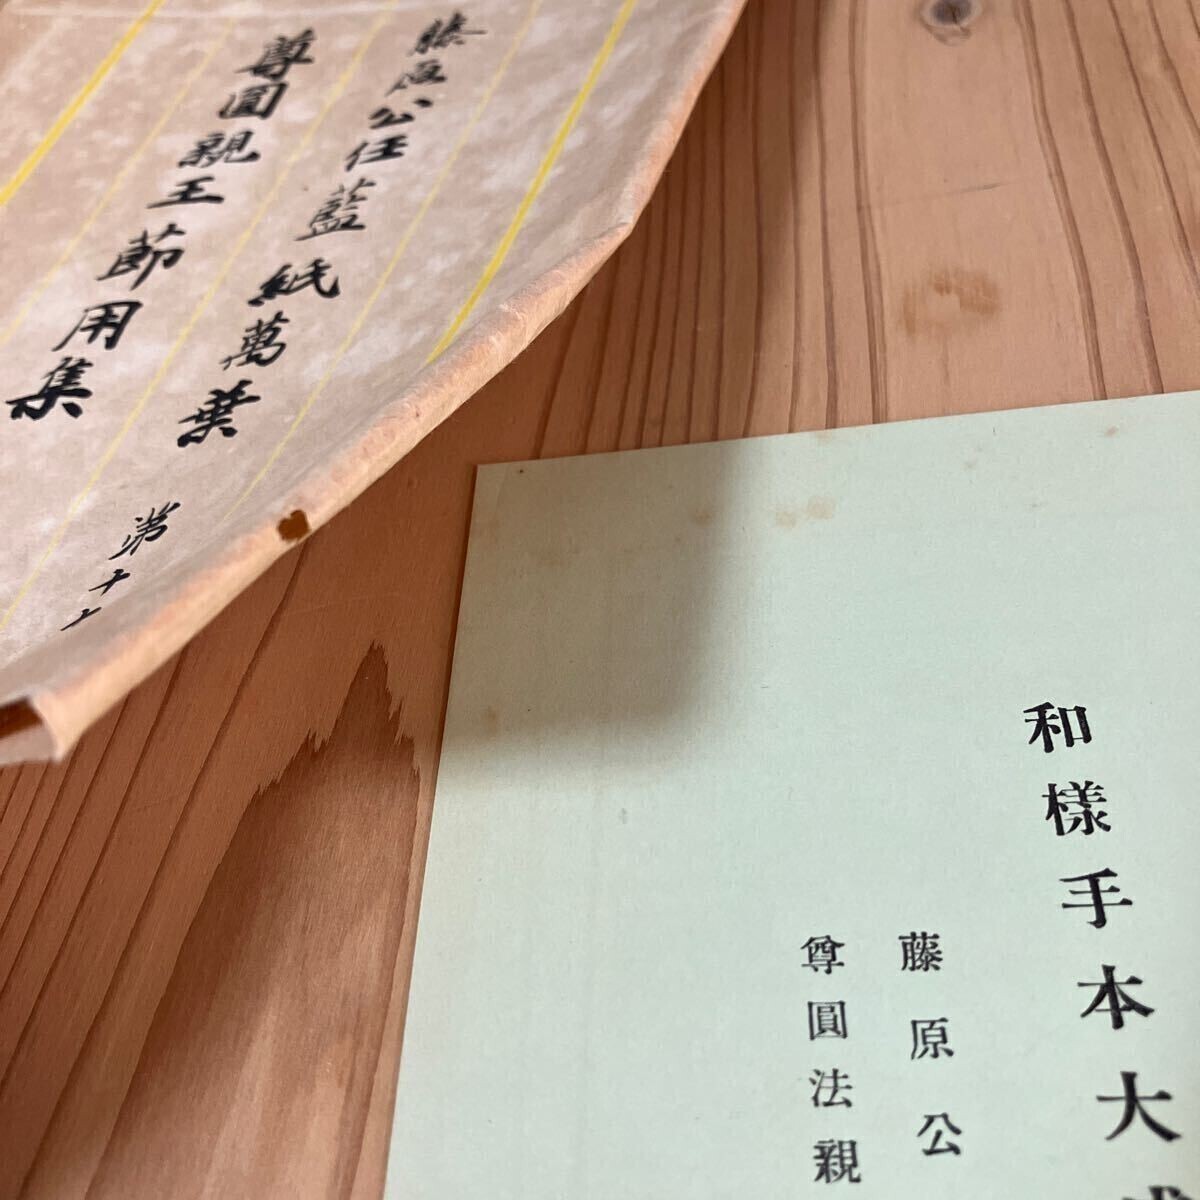 藤原公任藍紙萬葉
尊圓親王節用集
第十
和様手本大成
藤原公
尊圓法親